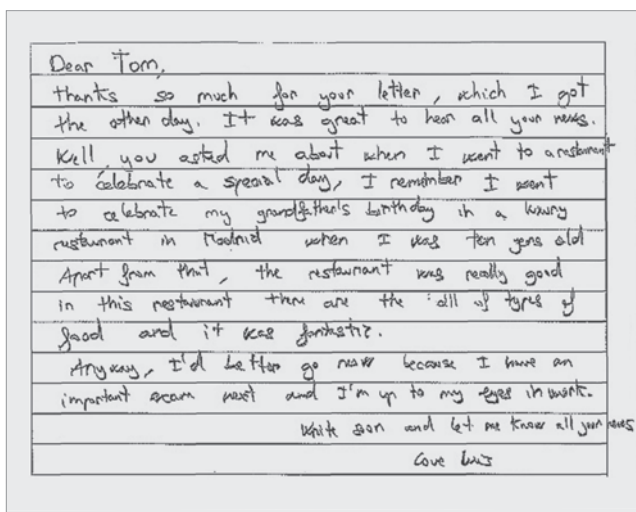 Dear Tom,
thanks so much for your letter, which I got
the other day. It was great to hear all your news.
Well, you asted me about when I went to a restaurant
to celebrate a special day, I remember I went
to celebrate my grandfather's birthday in a luxury
restaurant in Madrid when I was ten years old
Apart from that, the restaurant was really good
in this restaurant there are the all of types of
food and it was fantastic.
Anyway, I'd better go now because I have an
important exam next and I'm up to my eyes in work.
Write soon and let me know all your news
Love Luis